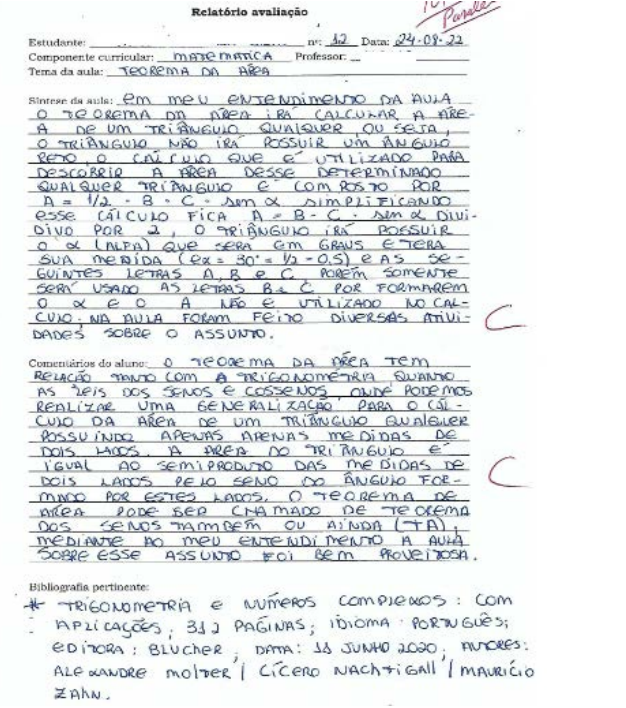 Relatório avaliação
Parabé
Estudante: nº: 12 Data: 24-08-22
Componente curricular: MATEMÁTICA Professor:
Tema da aula: TEOREMA DA ÁREA
Síntese da aula: Em MEU ENTENDIMENTO DA AULA
O TEOREMA DA ÁREA IRÁ CALCULAR A ÁRE-
A DE UM TRIÂNGULO QUALQUER, OU SEJA,
O TRIÂNGULO NÃO IRÁ POSSUIR UM ÂNGULO
RETO, O CÁLCULO QUE É UTILIZADO PARA
DESCOBRIR A ÁREA DESSE DETERMINADO
QUALQUER TRIÂNGULO É COMPOSTO POR
A = 1/2 · B · C · sen α SIMPLIFICANDO
ESSE CÁLCULO FICA A = B · C · sen α DIVI-
DIVO POR 2, O TRIÂNGULO IRÁ POSSUIR
O α (ALFA) QUE SERÁ EM GRAUS E TERÁ
SUA MEDIDA (ex = 30° = 1/2 = 0,5) E AS SE-
GUINTES LETRAS A, B e C, PORÉM SOMENTE
SERÁ USADO AS LETRAS B e C POR FORMAREM
O α E O A NÃO É UTILIZADO NO CÁL-
CULO. NA AULA FORAM FEITO DIVERSAS ATIVI-
DADES SOBRE O ASSUNTO.
C
Comentários do aluno: O TEOREMA DA ÁREA TEM
RELAÇÃO TANTO COM A TRIGONOMETRIA QUANTO
AS LEIS DOS SENOS E COSSENOS, ONDE PODEMOS
REALIZAR UMA GENERALIZAÇÃO PARA O CÁL-
CULO DA ÁREA DE UM TRIÂNGULO QUALQUER
POSSUINDO APENAS APENAS MEDIDAS DE
DOIS LADOS. A ÁREA DO TRIÂNGULO É
IGUAL AO SEMIPRODUTO DAS MEDIDAS DE
DOIS LADOS PELO SENO DO ÂNGULO FOR-
MADO POR ESTES LADOS. O TEOREMA DE
ÁREA PODE SER CHAMADO DE TEOREMA
DOS SENOS TAMBÉM OU AINDA (TA),
MEDIANTE AO MEU ENTENDIMENTO A AULA
SOBRE ESSE ASSUNTO FOI BEM PROVEITOSA.
C
Bibliografia pertinente:
* TRIGONOMETRIA E NÚMEROS COMPLEXOS: COM
APLICAÇÕES; 312 PÁGINAS; IDIOMA: PORTUGUÊS;
EDITORA: BLUCHER; DATA: 11 JUNHO 2020; AUTORES:
ALEXANDRE MOLTER / CÍCERO NACHTIGALL / MAURÍCIO
ZAHN.